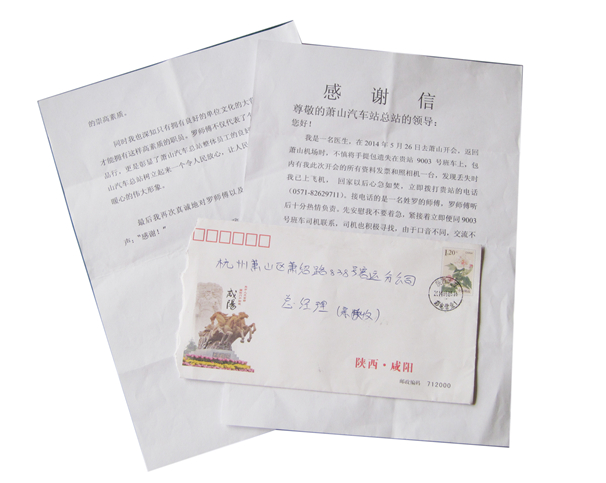 的崇高素质。
同时我也深知只有拥有良好的单位文化的大
才能拥有这样高素质的职员。罗师傅不仅代表了个
品行，更是彰显了萧山汽车总站整体员工的良好
山汽车总站树立起来一个令人民放心，让人民
暖心的伟大形象。
最后我再次真诚地对罗师傅以及
声：“感谢！”
感 谢 信
尊敬的萧山汽车站总站的领导：
您好！
我是一名医生，在 2014 年 5 月 26 日去萧山开会，返回
萧山机场时，不慎将手提包遗失在贵站 9003 号班车上，包
内有我此次开会的所有资料发票和照相机一台，发现丢失时
我已上飞机， 回家以后心急如焚，立即拨打贵站的电话
（0571-82629711）。接电话的是一名姓罗的师傅，罗师傅听
后十分热情负责，先安慰我不要着急，紧接着立即便同 9003
号班车司机联系，司机也积极寻找，由于口音不同，交流不
1.20
杭州萧山区萧绍路828号客运分公司
总经理
咸陽
陕西·咸阳
邮政编码 712000